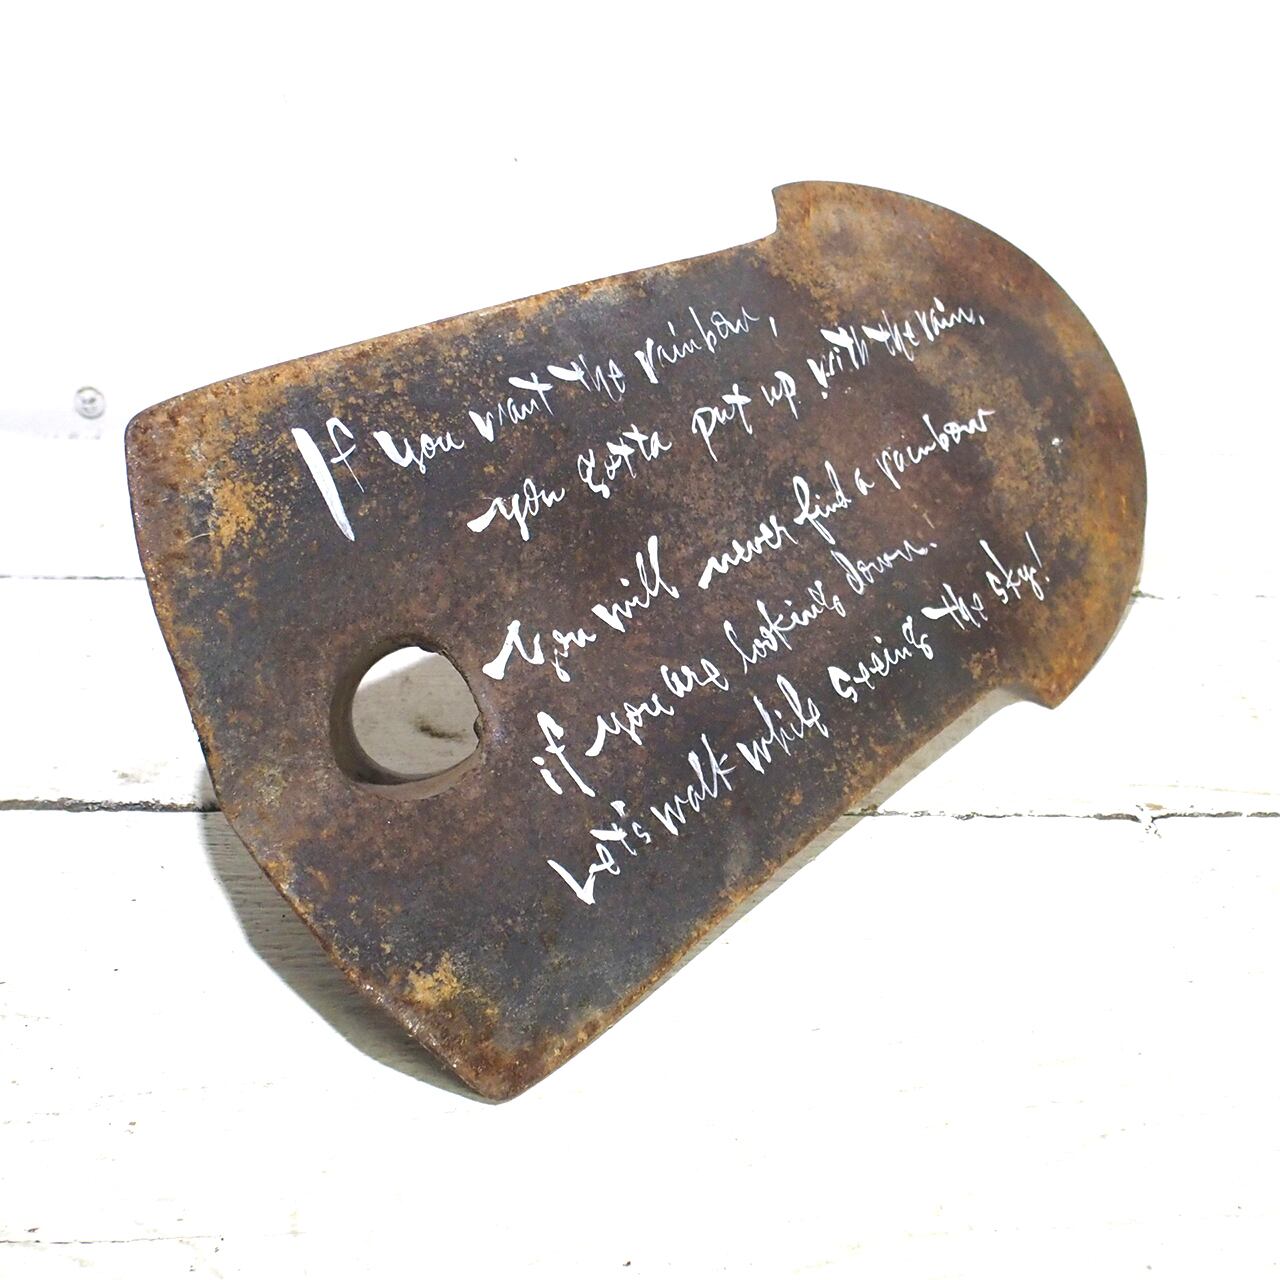 If you want the rainbow,
you gotta put up with the rain.
You will never find a rainbow
if you are looking down.
Let's walk while seeing the sky!